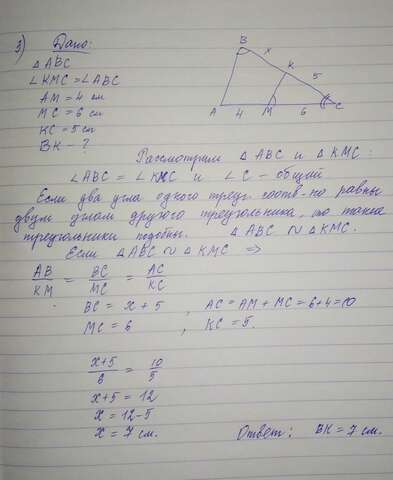 3) Дано:
△ABC
∠KMC = ∠ABC
AM = 4 см
MC = 6 см
KC = 5 см
BK - ?
B
x
K
5
A 4 M 6 C
Рассмотрим △ABC и △KMC:
∠ABC = ∠KMC и ∠C - общий
Если два угла одного треуг. соотв-но равны
двум углам другого треугольника, то такие
треугольники подобны. △ABC ∾ △KMC.
Если △ABC ∾ △KMC ⇒
AB/KM = BC/MC = AC/KC
BC = x + 5, AC = AM + MC = 6+4=10
MC = 6, KC = 5.
x+5/6 = 10/5
x+5 = 12
x = 12-5
x = 7 см.
Ответ: BK = 7 см.